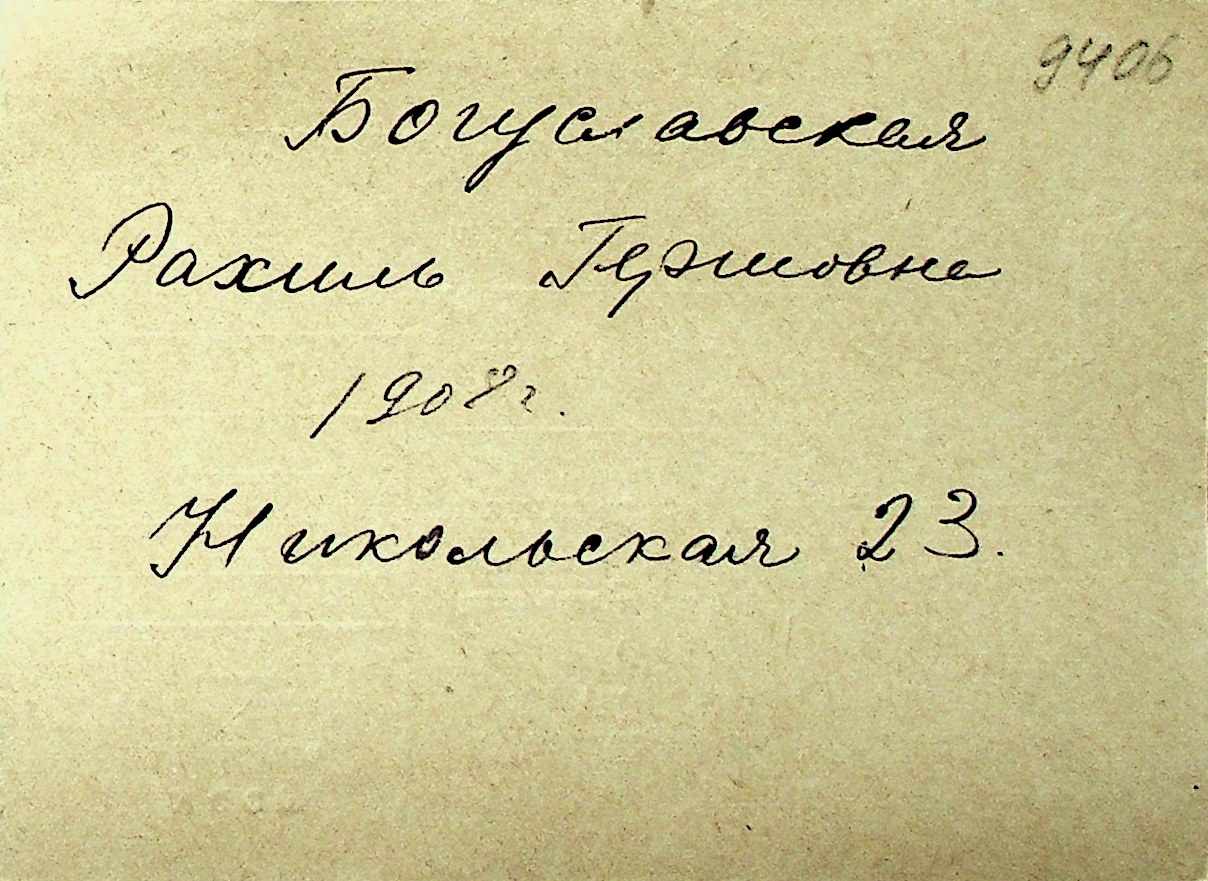 9406
Богуславская
Рахиль Гершовна
1908г.
Никольская 23.